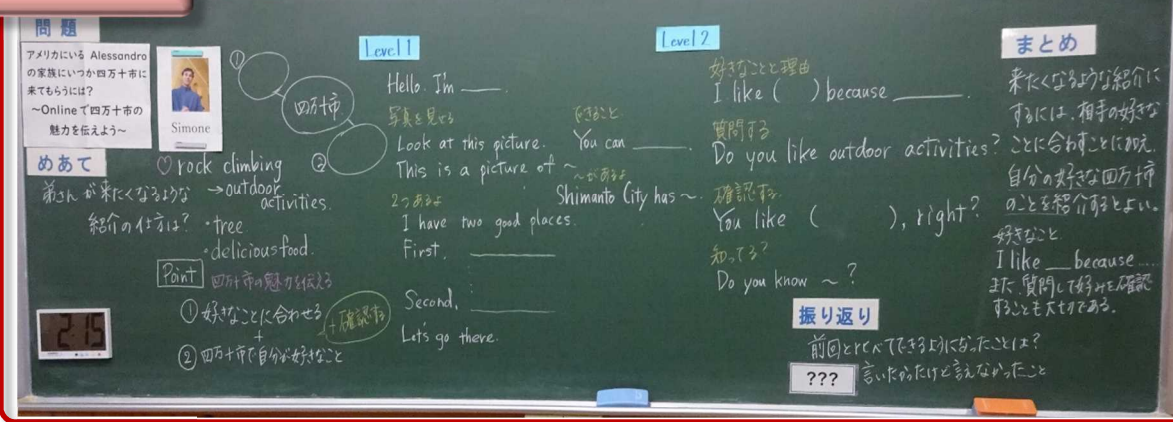 問題
アメリカにいる Alessandro
の家族にいつか四万十市に
来てもらうには?
～Onlineで四万十市の
魅力を伝えよう～
Simone
めあて
弟さんが来たくなるような
紹介の仕方は?
♡rock climbing
→outdoor
activities.
・tree
・delicious food.
Point 四万十市の魅力を伝える
① 好きなことに合わせる
+
② 四万十市で自分が好きなこと
+確認する
2:15
①
四万十市
②
Level 1
Hello. I'm ____.
写真を見せる
Look at this picture.
This is a picture of ~
2つあるよ
I have two good places.
First, ________
Second, ________
Let's go there.
できること
You can ____.
～があるよ
Shimanto City has ~.
Level 2
好きなことと理由
I like ( ) because ____.
質問する
Do you like outdoor activities?
確認する
You like ( ), right?
知ってる?
Do you know ~ ?
振り返り
前回と比べてできるようになったことは?
??? 言いたかったけど言えなかったこと
まとめ
来たくなるような紹介に
するには、相手の好きな
ことに合わすことに加え、
自分の好きな四万十市
のことを紹介するとよい。
好きなこと
I like __ because ....
また、質問して好みを確認
することも大切である。